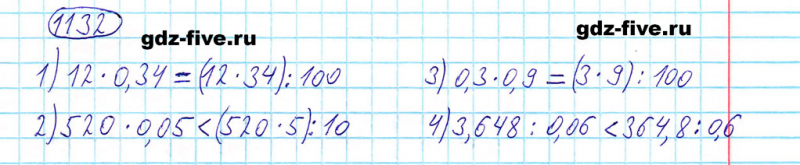 1132
gdz-five.ru
gdz-five.ru
1) 12 · 0,34 = (12 · 34) : 100
3) 0,3 · 0,9 = (3 · 9) : 100
2) 520 · 0,05 < (520 · 5) : 10
4) 3,648 : 0,06 < 364,8 : 0,6